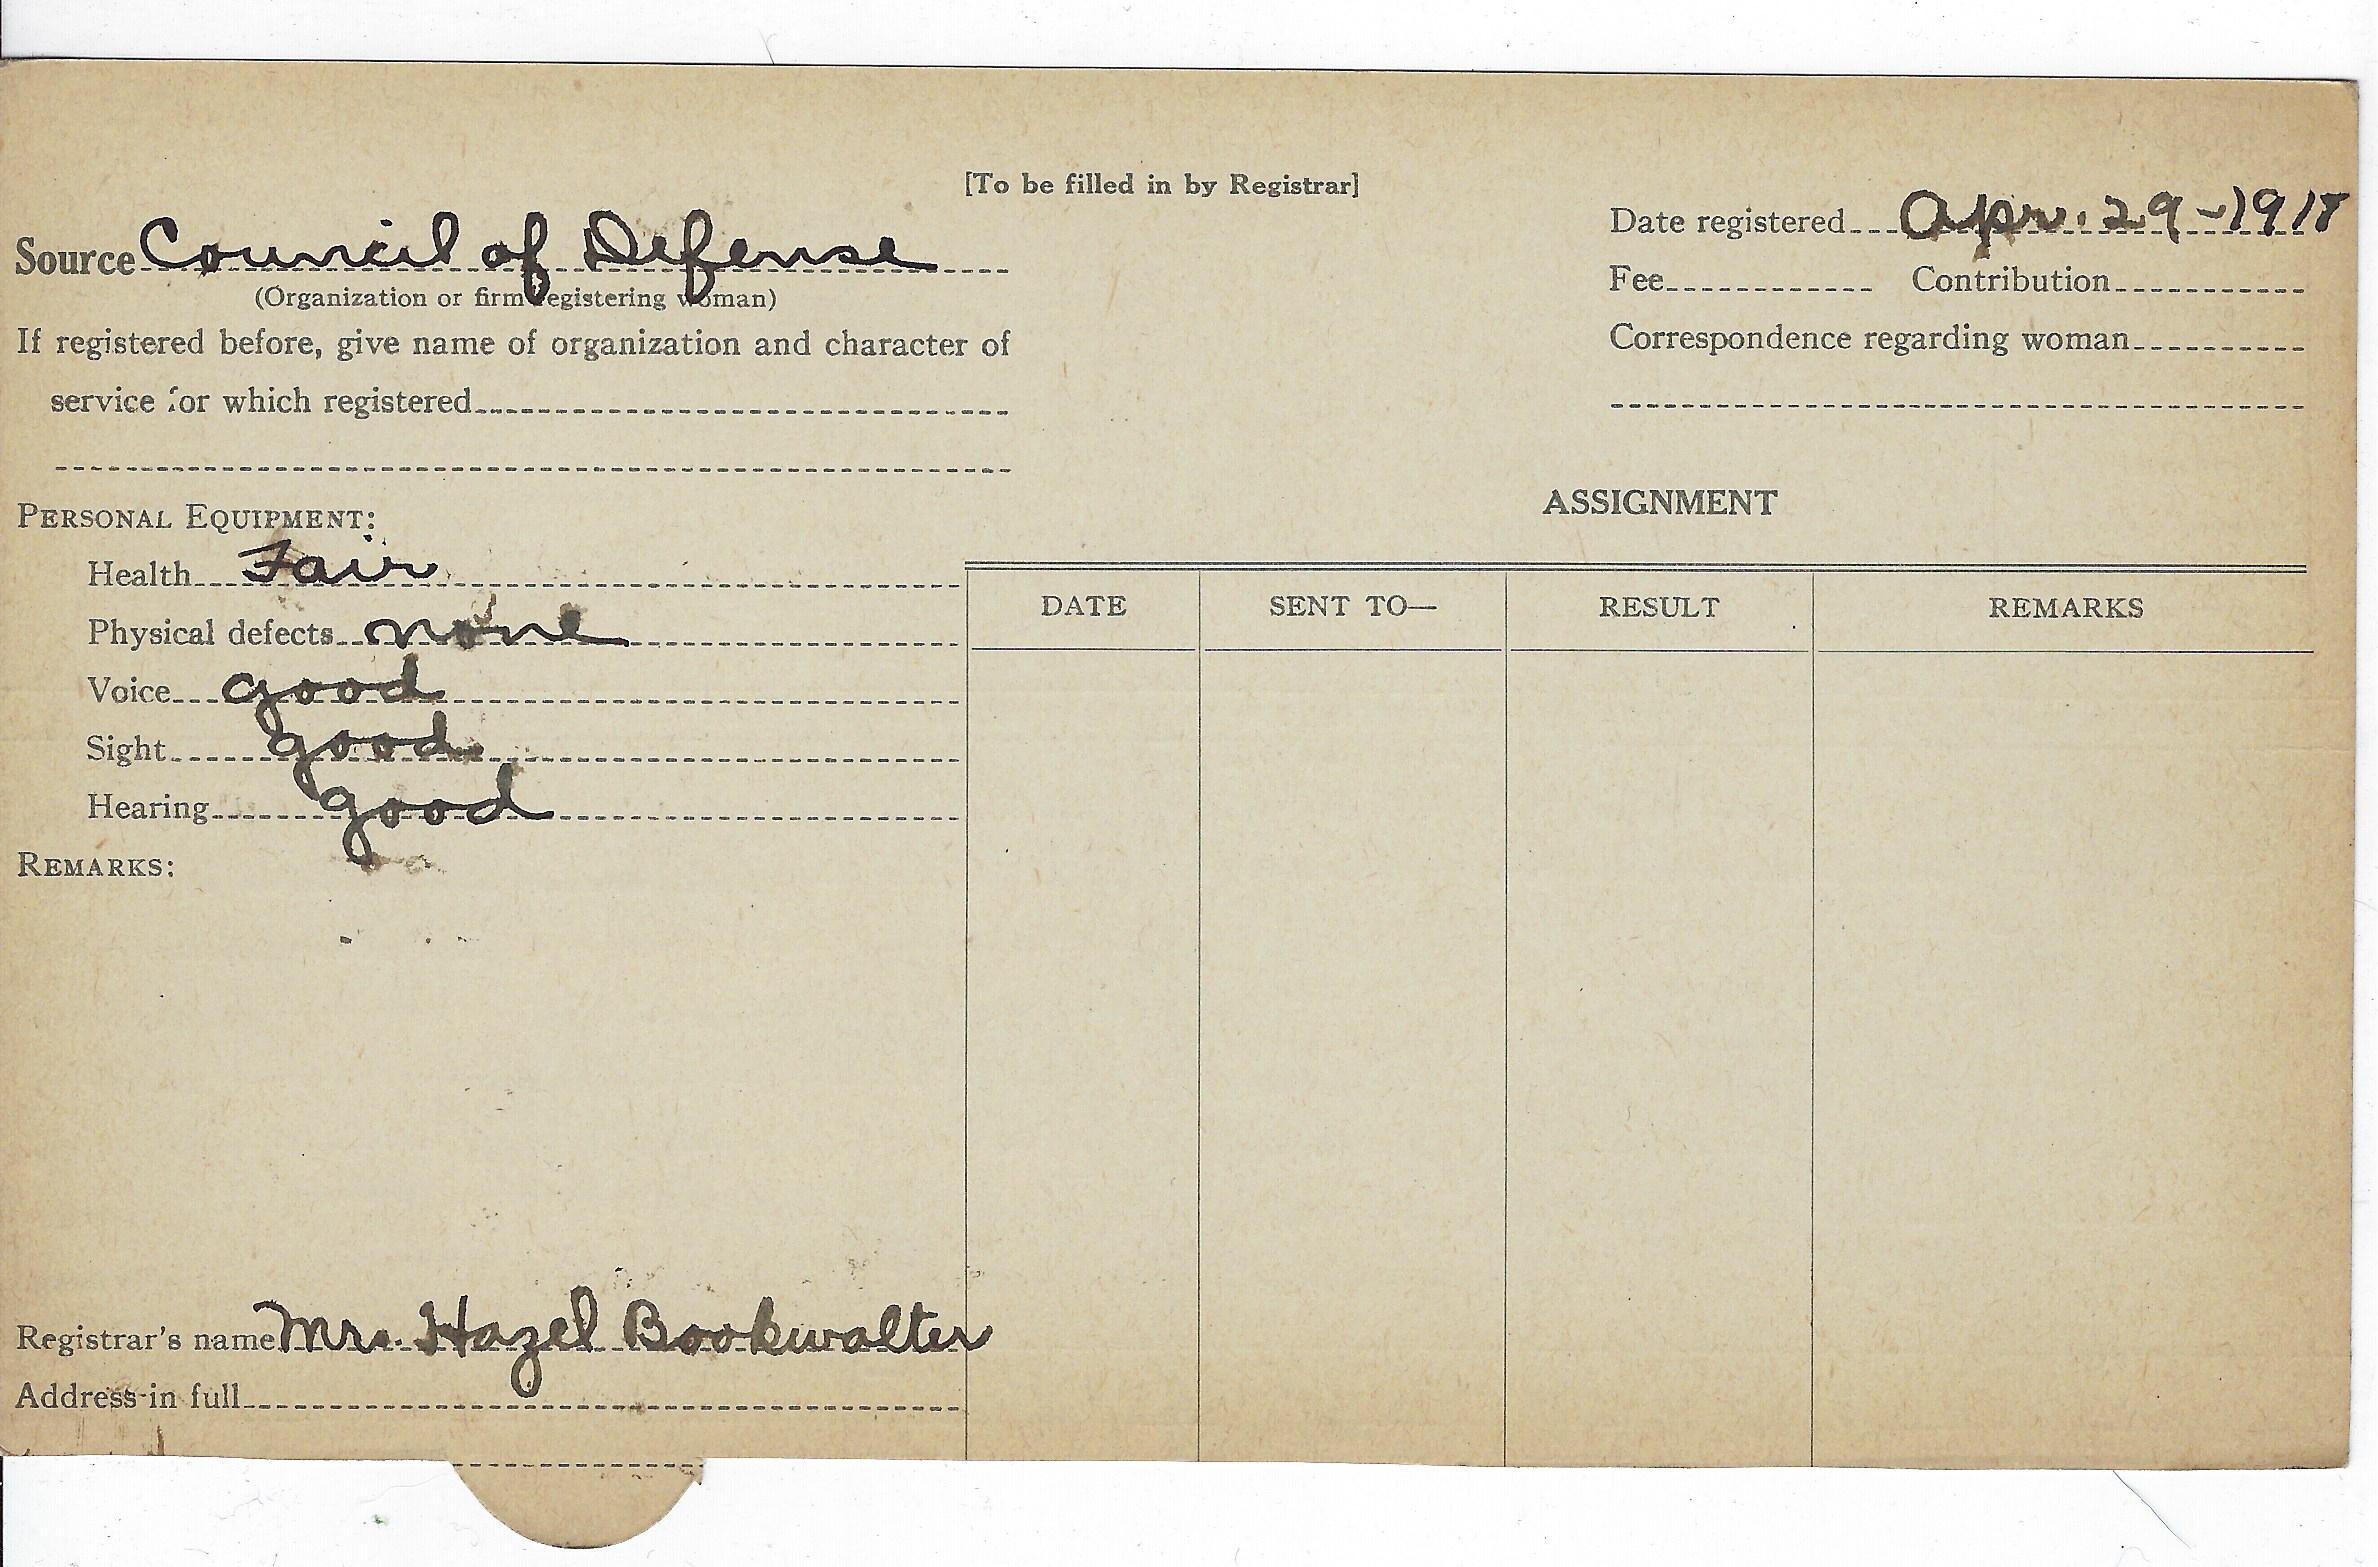 [To be filled in by Registrar]
Source Council of Defense
(Organization or firm registering woman)
If registered before, give name of organization and character of
service for which registered
Date registered Apr. 29-1918
Fee Contribution
Correspondence regarding woman
PERSONAL EQUIPMENT:
Health Fair
Physical defects none
Voice good
Sight good
Hearing good
REMARKS:
ASSIGNMENT
DATE SENT TO— RESULT REMARKS
Registrar's name Mrs. Hazel Bookwalter
Address in full